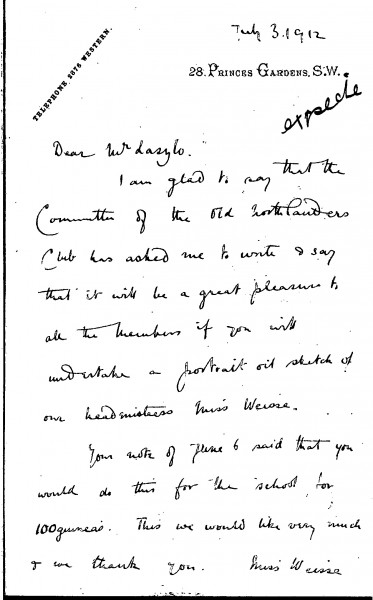 July 3. 1912
TELEPHONE 2675 WESTERN.
28. PRINCES GARDENS, S.W.
expedié
Dear Mr Laszlo.
I am glad to say that the
Committee of the old northlanders
Club has asked me to write & say
that it will be a great pleasure to
all the members if you will
undertake a portrait oil sketch of
our headmistress Miss Weisse.
Your note of June 6 said that you
would do this for the school for
100 guineas. This we would like very much
& we thank you. Miss Weisse